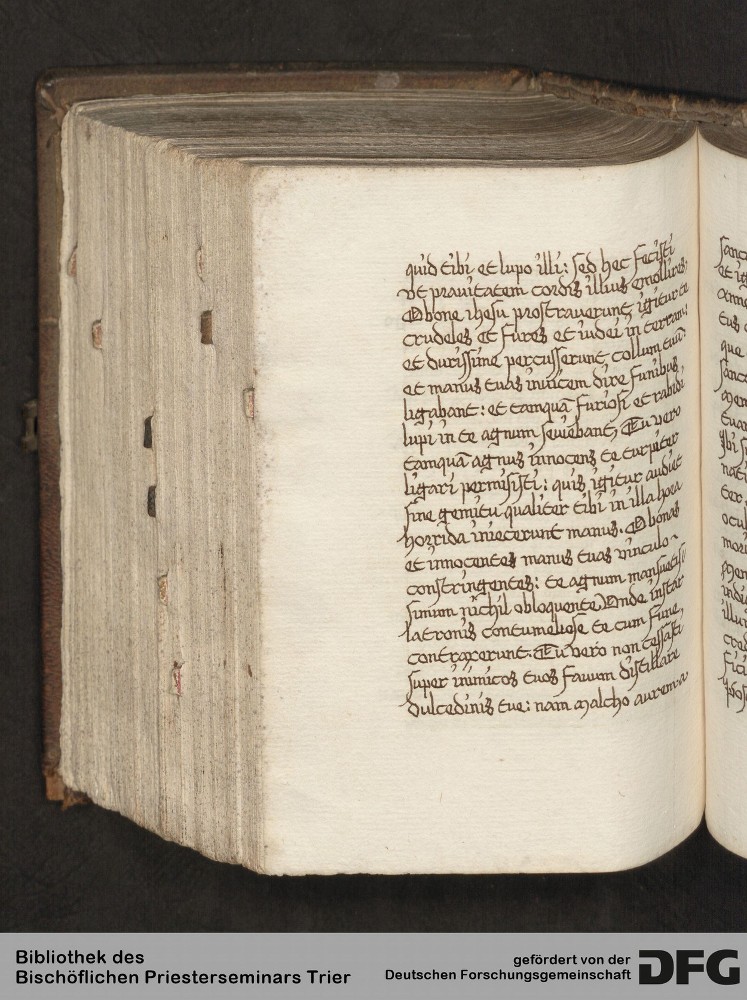 quid tibi et lupo illi: sed hec fecisti
vt prauitatem cordis illius emollires.
O bone ihesu prostrauerunt igitur te
crudeles et fures et iudei in terram:
et durissime percusserunt collum tuū:
et manus tuas inuicem dire funibus
ligabant: et tamquā furiosi et rabidi
lupi in te agnum seuiebant, Tu vero
tamquā agnus innocens te turpiter
ligari permisisti: quis igitur audiet
sine gemitu qualiter tibi in illa hora
horrida iniecerunt manus. O bonas
et innocentes manus tuas vinculo
constringentes: te agnum mansuetis
simum nichil obloquente Unde instar
latronis contumeliose te cum fune
contraxerunt. Tu vero non cessasti
super inimicos tuos fauum distillare
dulcedinis tue: nam malcho aurem a
sanct
et ig
tus
que
sanct
tuar
Ibi s
nati
ter
ocul
mori
indu
illu
cred
fici
Bibliothek des
Bischöflichen Priesterseminars Trier
gefördert von der
Deutschen Forschungsgemeinschaft DFG